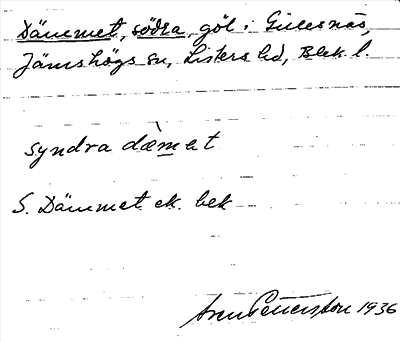 Dämmet, södra, göl i Gillesnäs,
Jämshögs sn, Listers hd, Blek. l.
syndra dæ̀met
S. Dämmet ek. bek
Sven Pettersson 1936